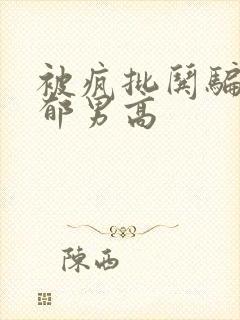 被疯批闺骗
郁男高
陳西